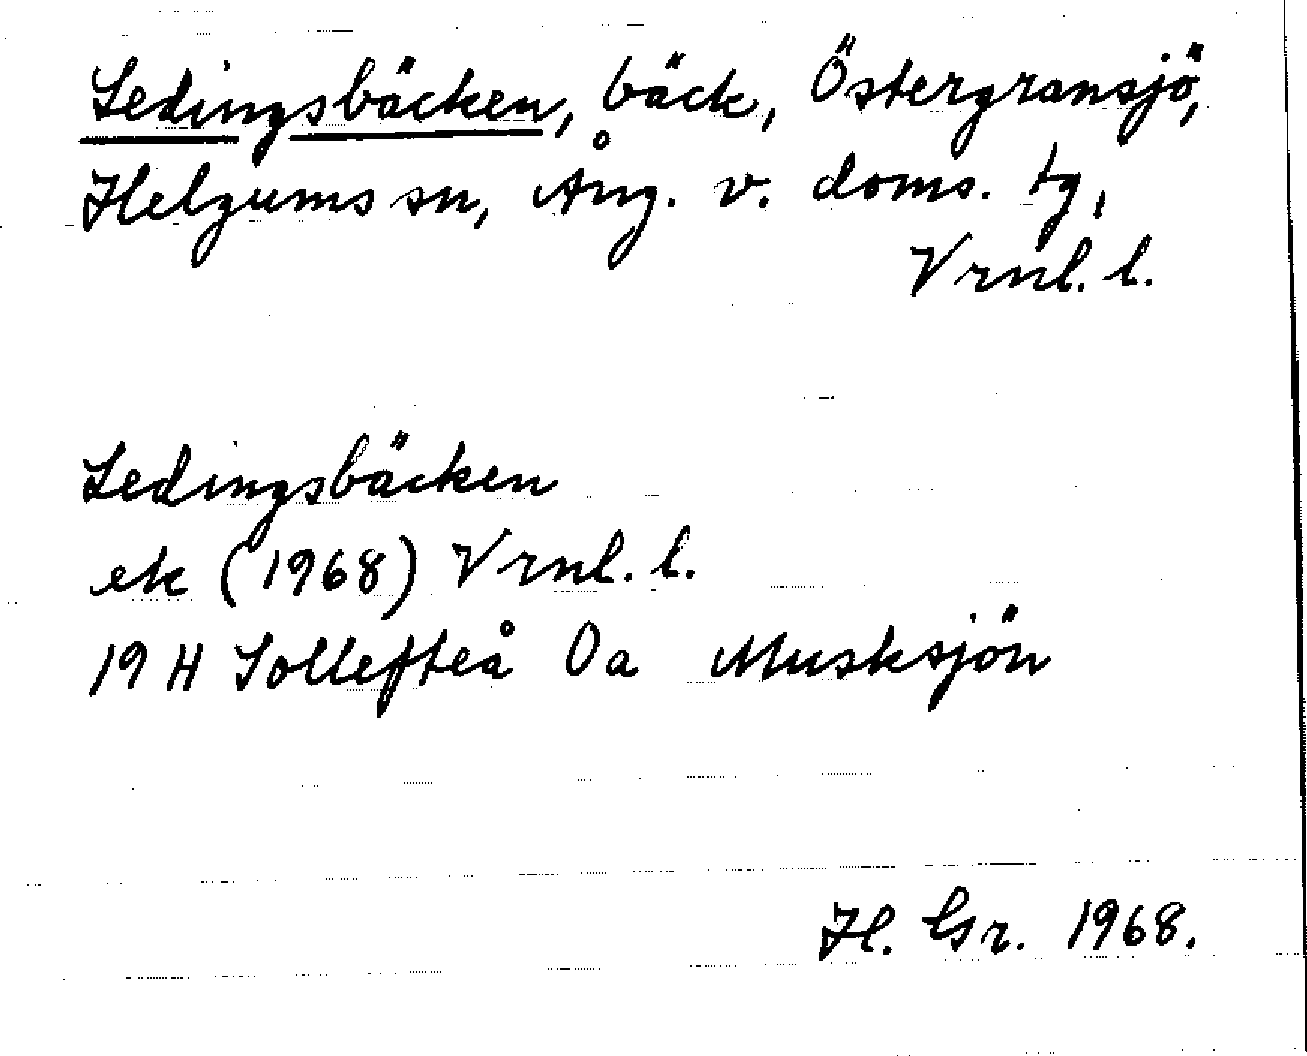 Ledingsbäcken, bäck, Östergransjö,
Helgums sn, Ång. v. doms. tg,
Vrnl. l.
Ledingsbäcken
ek (1968) Vrnl. l.
19 H Sollefteå 0a Musksjön
H. Gr. 1968.